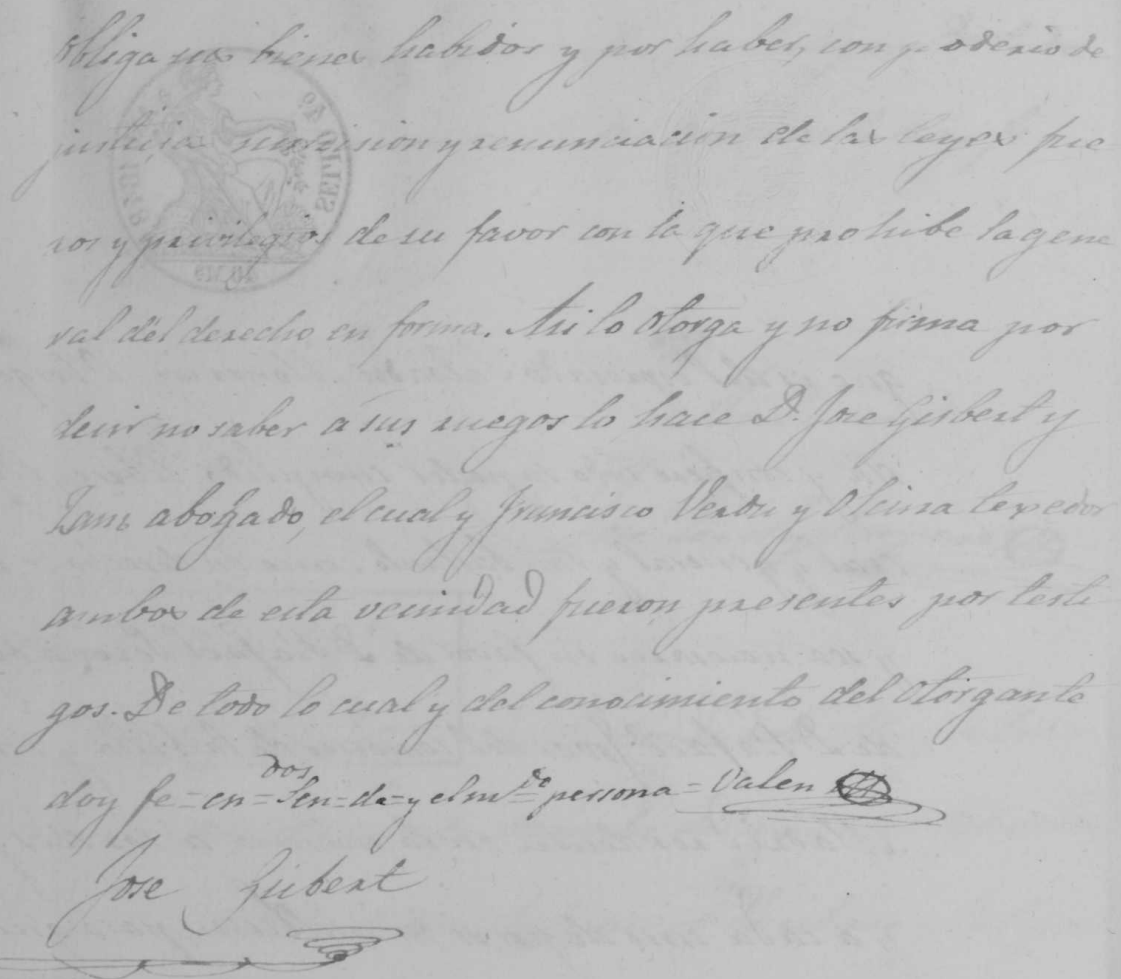 obliga sus bienes habidos y por haber, con poderio de
justicia sumision y renunciacion de las leyes fue
ros y privilegios de su favor con la que prohibe la gene
ral del derecho en forma. Asi lo otorga y no firma por
decir no saber a sus ruegos lo hace D. Jose Gisbert y
abogado, el cual y Francisco Verdu y Olcina texedor
ambos de esta vecindad fueron presentes por testi
gos. De todo lo cual y del conocimiento del otorgante
doy fe = en = dos = y el persona = Valen
Jose Gisbert
SELLO 4o